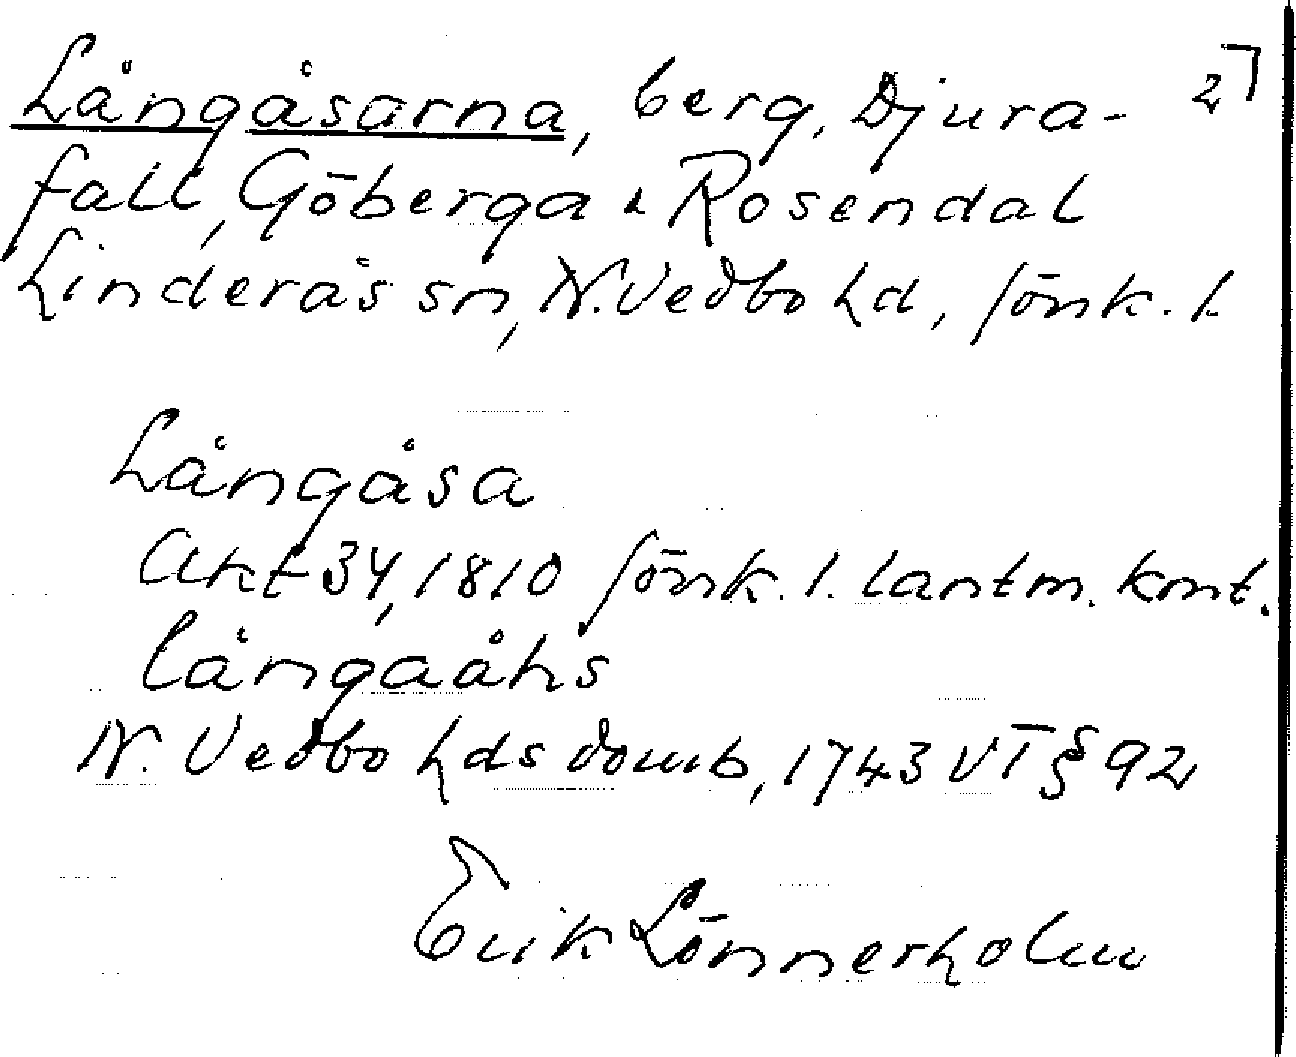 Långåsarna, berg, Djura- 27
fall, Göberga & Rosendal
Linderås sn, N. Vedbo hd, Jönk. l.
Långåsa
Akt 34, 1810 Jönk. l. lantm. kont.
långaåhs
N. Vedbo hds domb, 1743 VT § 92
Erik Lönnerholm